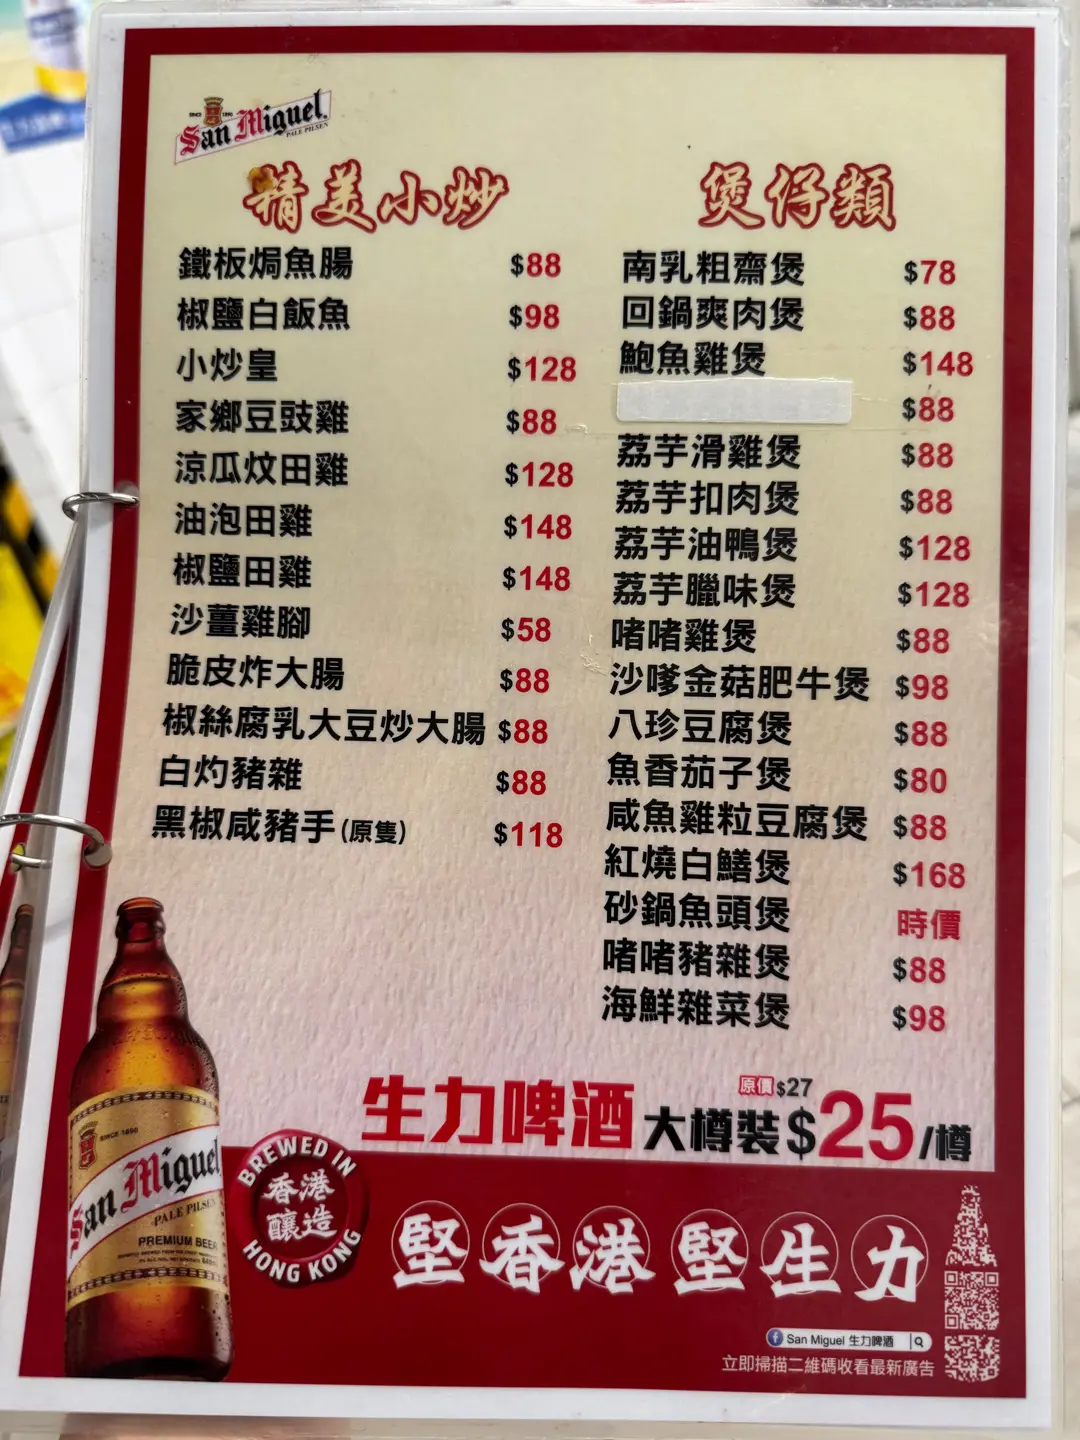 San Miguel
PALE PILSEN
精美小炒
鐵板焗魚腸 $88
椒鹽白飯魚 $98
小炒皇 $128
家鄉豆豉雞 $88
涼瓜炆田雞 $128
油泡田雞 $148
椒鹽田雞 $148
沙薑雞腳 $58
脆皮炸大腸 $88
椒絲腐乳大豆炒大腸 $88
白灼豬雜 $88
黑椒咸豬手(原隻) $118
煲仔類
南乳粗齋煲 $78
回鍋爽肉煲 $88
鮑魚雞煲 $148
$88
荔芋滑雞煲 $88
荔芋扣肉煲 $88
荔芋油鴨煲 $128
荔芋臘味煲 $128
啫啫雞煲 $88
沙嗲金菇肥牛煲 $98
八珍豆腐煲 $88
魚香茄子煲 $80
咸魚雞粒豆腐煲 $88
紅燒白鱔煲 $168
砂鍋魚頭煲 時價
啫啫豬雜煲 $88
海鮮雜菜煲 $98
原價$27
生力啤酒 大樽裝$25/樽
BREWED IN
香港
釀造
HONG KONG
堅香港堅生力
San Miguel 生力啤酒
立即掃描二維碼收看最新廣告
SINCE 1890
San Miguel
PALE PILSEN
PREMIUM BEER